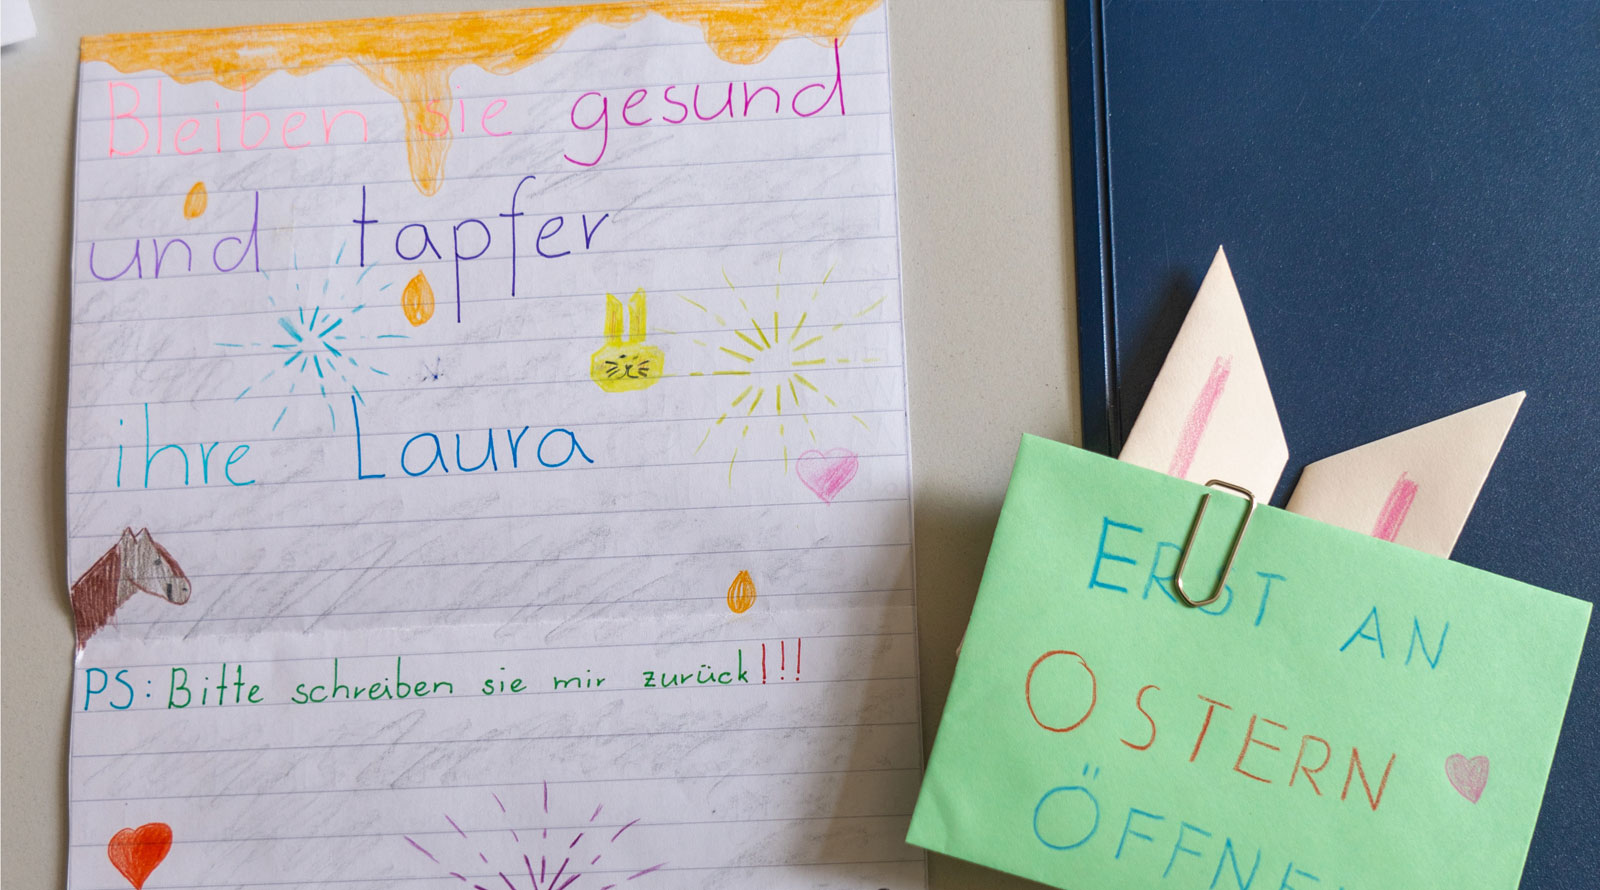 Bleiben sie gesund
und tapfer
ihre Laura
PS: Bitte schreiben sie mir zurück!!!
ERST AN
OSTERN
ÖFFNE